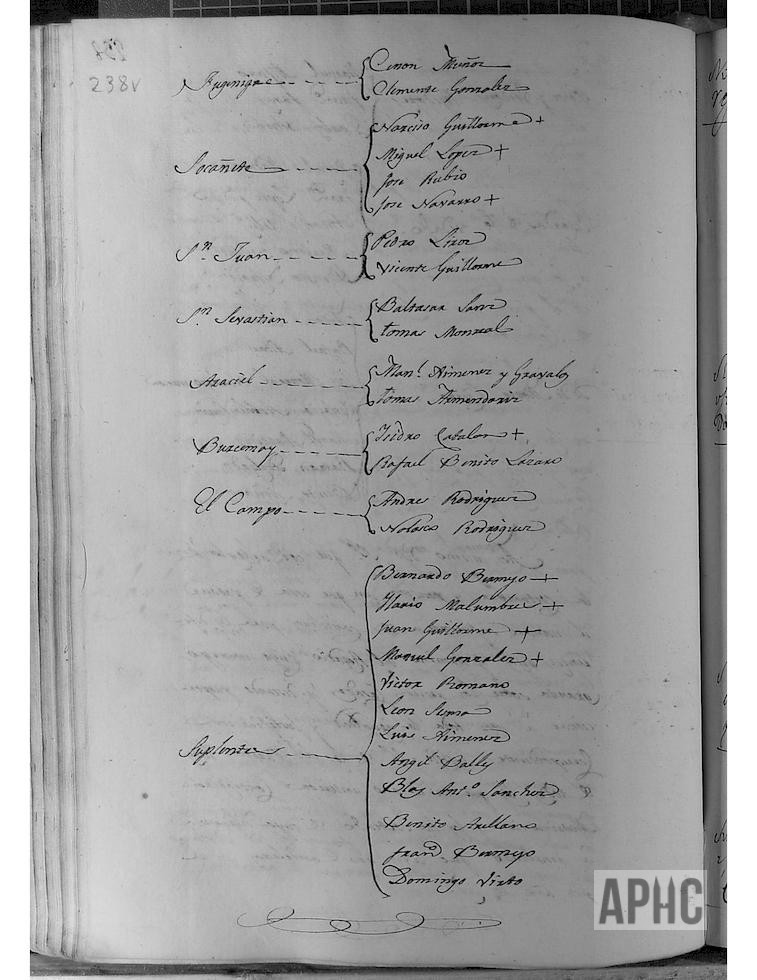 238v
Cenon Muñoz
Clemente Gonzalez
Narciso Guillorme +
Miguel Lopez +
Socañete
Jose Rubio
Jose Navarro +
Sn. Juan
Pedro Liroz
Vicente Guillorme
Sn. Sevastian
Baltasar Sanz
tomas Monreal
Araciel
Manl. Ximenez y Gravalos
tomas Armendariz
Isidro Catalan +
Rafael Benito Lazaro
El Campo
Andres Rodriguez
Nolasco Rodriguez
Bernardo Bermejo +
Ilario Malumbres +
Juan Guillorme +
Manuel Gonzalez +
Victor Romano
Leon Sesma
Suplentes
Luis Ximenez
Angel Bally
Blas Anto. Sanchez
Benito Arellano
Franco. Bermejo
Domingo Virto
APHC